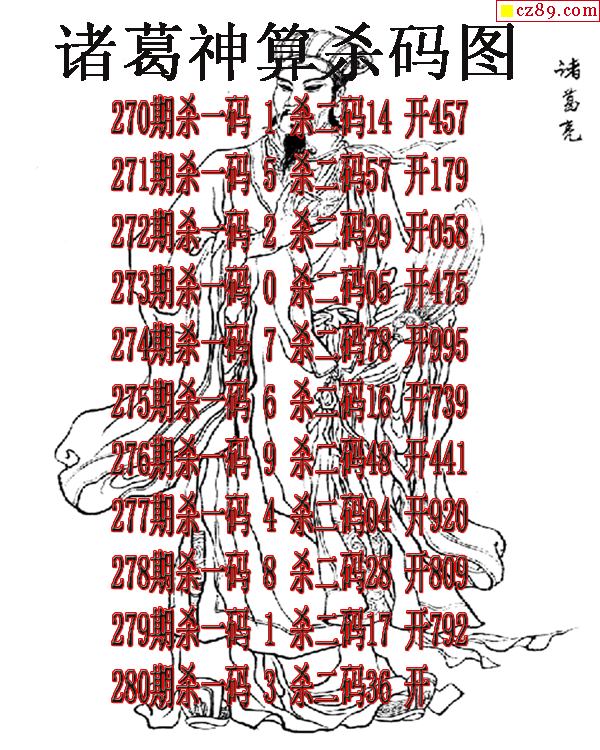 cz89.com
诸葛神算杀码图
诸葛亮
270期杀一码 1 杀二码14 开457
271期杀一码 5 杀二码57 开179
272期杀一码 2 杀二码29 开058
273期杀一码 0 杀二码05 开475
274期杀一码 7 杀二码78 开995
275期杀一码 6 杀二码16 开739
276期杀一码 9 杀二码48 开441
277期杀一码 4 杀二码04 开920
278期杀一码 8 杀二码28 开809
279期杀一码 1 杀二码17 开792
280期杀一码 3 杀二码36 开